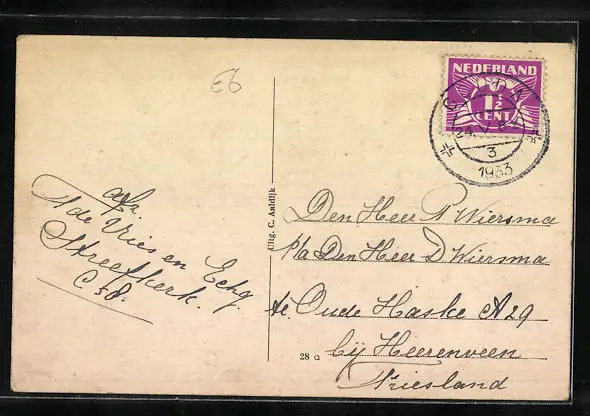 E6
NEDERLAND
1½
CENT
24. V
3
1933
afz.
de Vries en Echtg.
Streefkerk.
C 58.
Uitg. C. Aaldijk
28 a
Den Heer P Wiersma
p/a Den Heer D Wiersma
te Oude Haske A 29
bij Heerenveen
Friesland